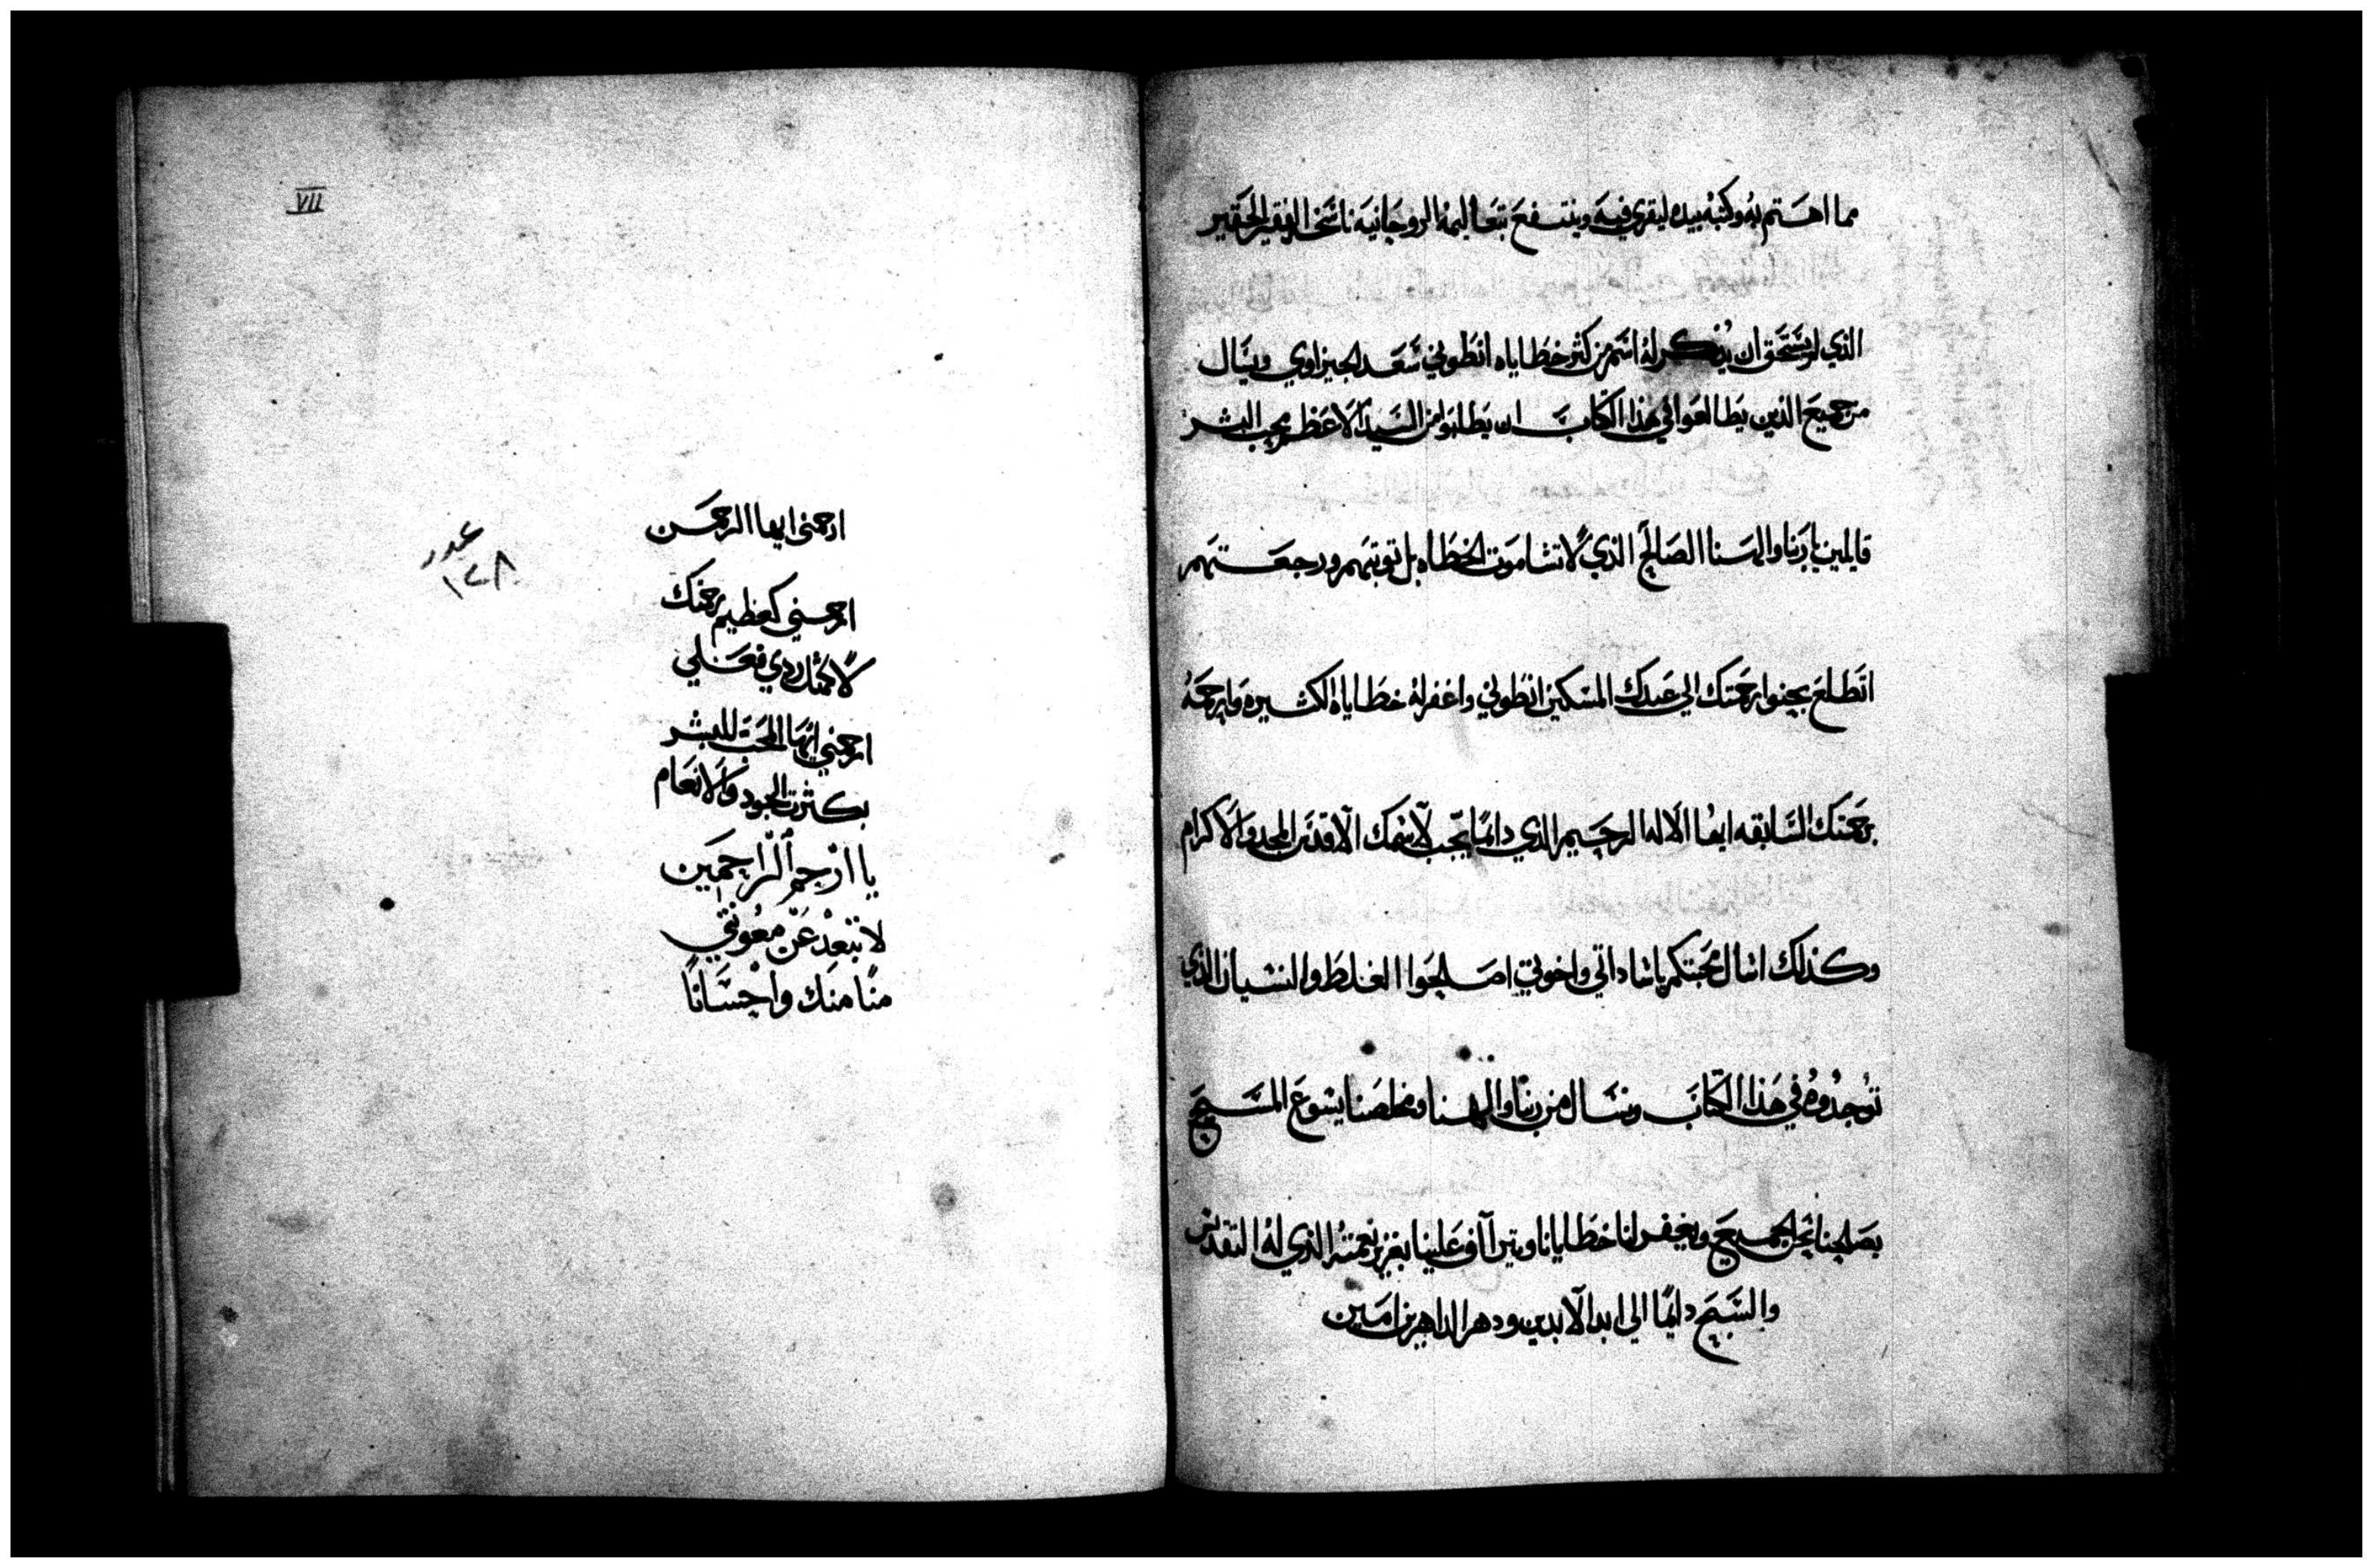 مما اهتم به وكتبه بيده ليقري فيه وينتفع بتعاليمه الروحانيه ناسخه الفقير الحقير
الذي لم يستحق ان يذكر له اسم من كثر خطاياه انطوني سعد الجيزاوي ويسال
من جميع الذين يطالعوا في هذا الكتاب ان يطلبوا من السيد الاعظم محب البشر
قايلين ياربنا والهنا الصالح الذي لا تشا موت الخطاه بل توبتهم ورجعتهم
اتطلع بحنو رحمتك الي عبدك المسكين انطوني واغفر له خطاياه الكثيره وارحمه
برحمتك السابقه ايها الاله الرحيم الذي دايمًا يجب لاسمك الاقدس المجد والاكرام
وكذلك اسال محبتكم ياساداتي واخوتي اصلحوا الغلط والنسيان الذي
توجدوه في هذا الكتاب ونسال من ربنا والهنا ومخلصنا يسوع المسيح
يصلحنا نحن الجميع ويغفر لنا خطايانا ويتراف علينا بغزير نعمته الذي له التقديس
والتسبيح دايمًا الي ابد الابدين ودهر الداهرين امين
VII
ارحمني ايها الرحمن
عدد
١٢٨
ارحمني كعظيم رحمتك
لا كمثل ردي فعلي
ارحمني ايها المحب للبشر
بكثرت الجود والانعام
يا ارْحم الرّاحمَين
لا تبْعدْ عَنّ معُونتي
منًا منك واحْسَانًا